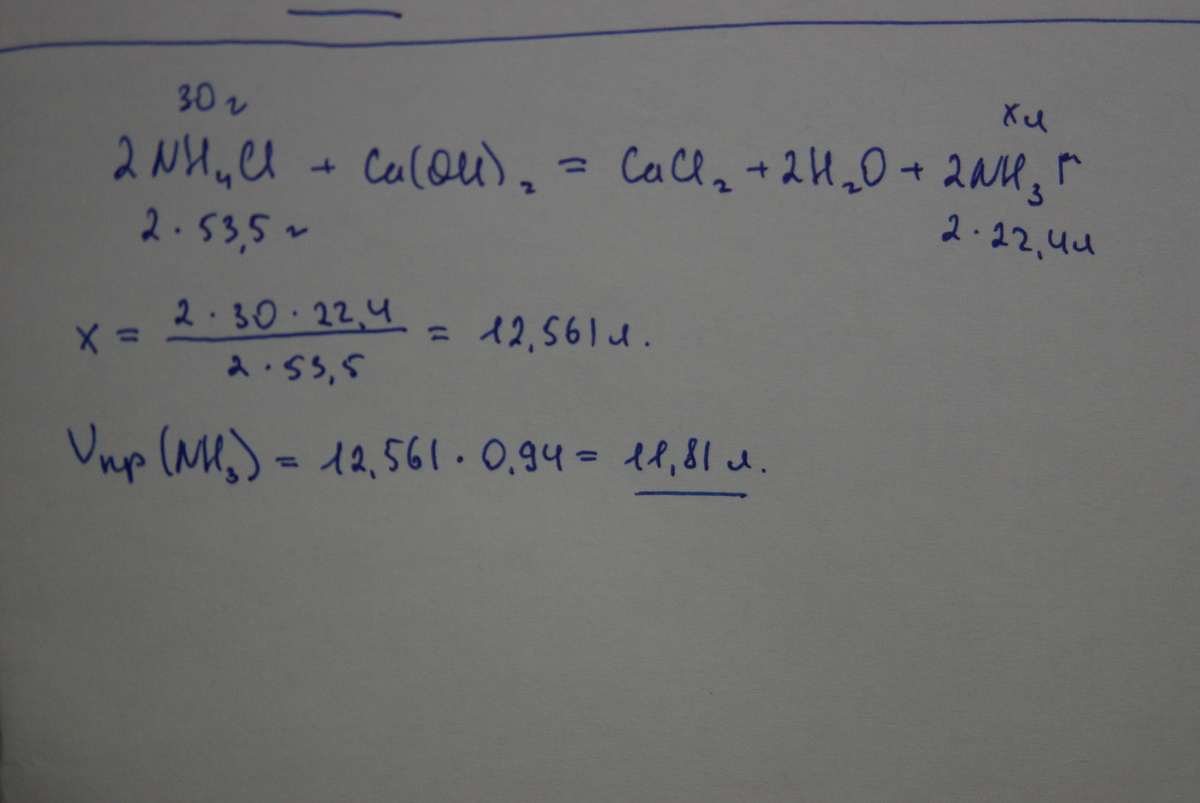 30 г
х л
2NH₄Cl + Ca(OH)₂ = CaCl₂ + 2H₂O + 2NH₃↑
2 · 53,5 г
2 · 22,4 л
x = (2 · 30 · 22,4) / (2 · 53,5) = 12,561 л.
Vпр(NH₃) = 12,561 · 0,94 = 11,81 л.